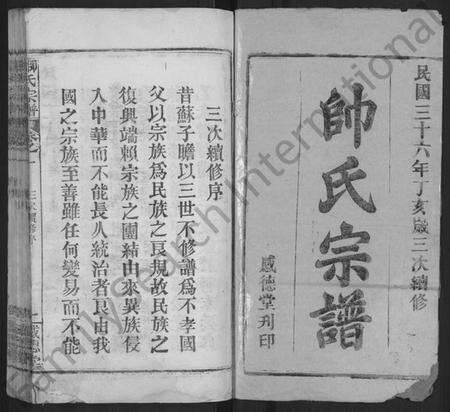 民國三十六年丁亥歲三次續修
帥氏宗譜
感德堂刊印
三次續修序
昔蘇子瞻以三世不修譜為不孝國
父以宗族為民族之良規故民族之
復興端賴宗族之團結由來異族侵
入中華而不能長久統治者良由我
國之宗族至善雖任何變易而不能
帥氏宗譜
三次續修序
FamilySearch International